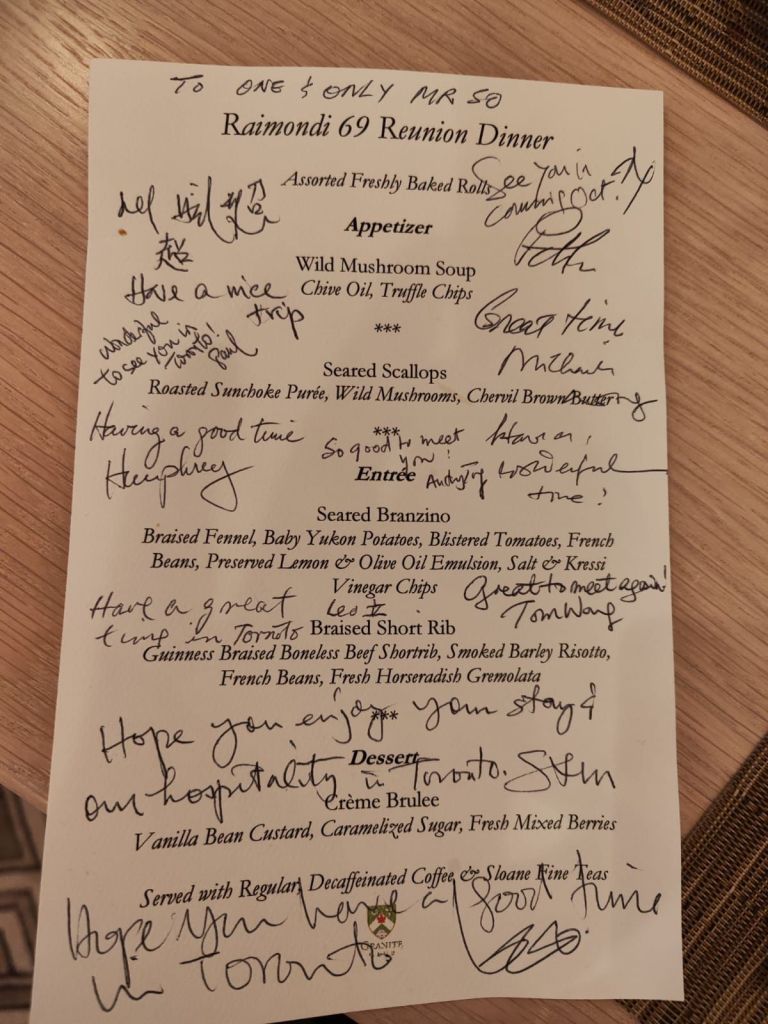 TO ONE & ONLY MR SO
Raimondi 69 Reunion Dinner
Assorted Freshly Baked Rolls
See you in
coming Oct.
Appetizer
超
Wild Mushroom Soup
Have a nice
trip
Chive Oil, Truffle Chips
***
Great time
Wonderful
to see you in
Toronto!
Paul
Seared Scallops
Roasted Sunchoke Purée, Wild Mushrooms, Chervil Brown Butter
***
Having a good time
Humphrey
So good to meet
you!
Have a
wonderful
time!
Entrée
Seared Branzino
Braised Fennel, Baby Yukon Potatoes, Blistered Tomatoes, French
Beans, Preserved Lemon & Olive Oil Emulsion, Salt & Kressi
Vinegar Chips
Great to meet again!
Tom Wong
Have a great
time in Toronto
Leo II
Braised Short Rib
Guinness Braised Boneless Beef Shortrib, Smoked Barley Risotto,
French Beans, Fresh Horseradish Gremolata
***
Hope you enjoy your stay &
our hospitality in Toronto.
Dessert
Crème Brulee
Vanilla Bean Custard, Caramelized Sugar, Fresh Mixed Berries
Served with Regular, Decaffeinated Coffee & Sloane Fine Teas
Hope you have a good time
in Toronto
GRANITE
CLUB